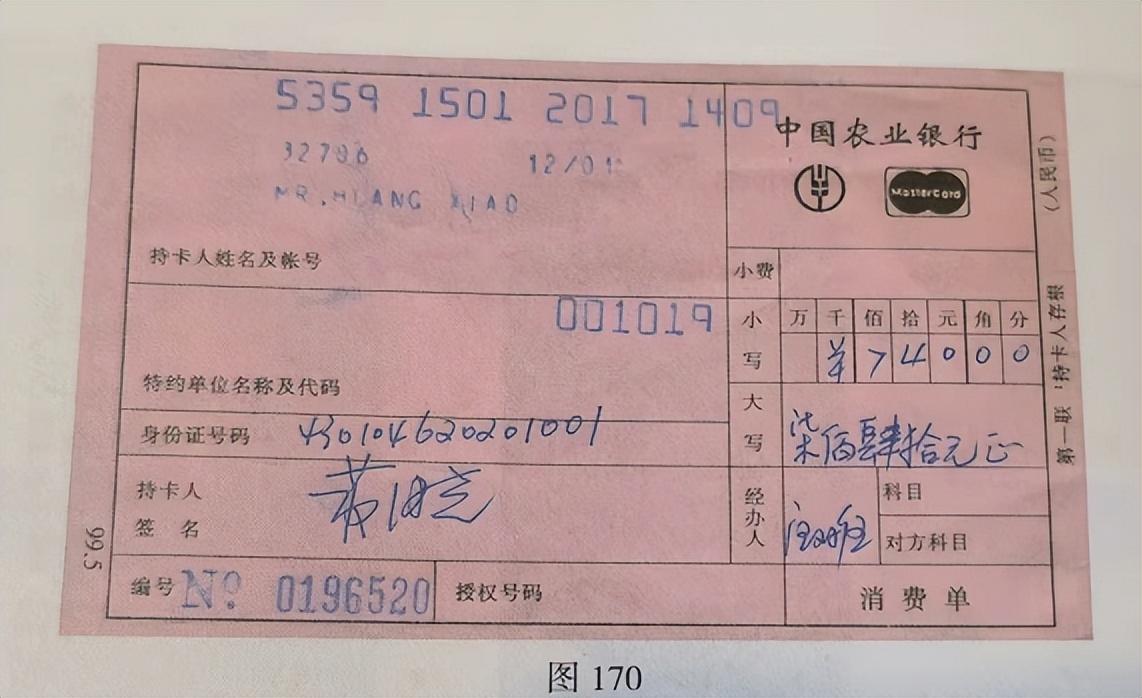 5359 1501 2017 1409
中国农业银行
MasterCard
(人民币)
持卡人姓名及帐号
小费
001019
小写
万 千 佰 拾 元 角 分
¥ 7 4 0 0 0
特约单位名称及代码
大写
柒佰肆拾元正
身份证号码 430104620201001
持卡人
签 名
经办人
科目
对方科目
编号 No. 0196520
授权号码
消费单
第一联:持卡人存根
99.5
图 170